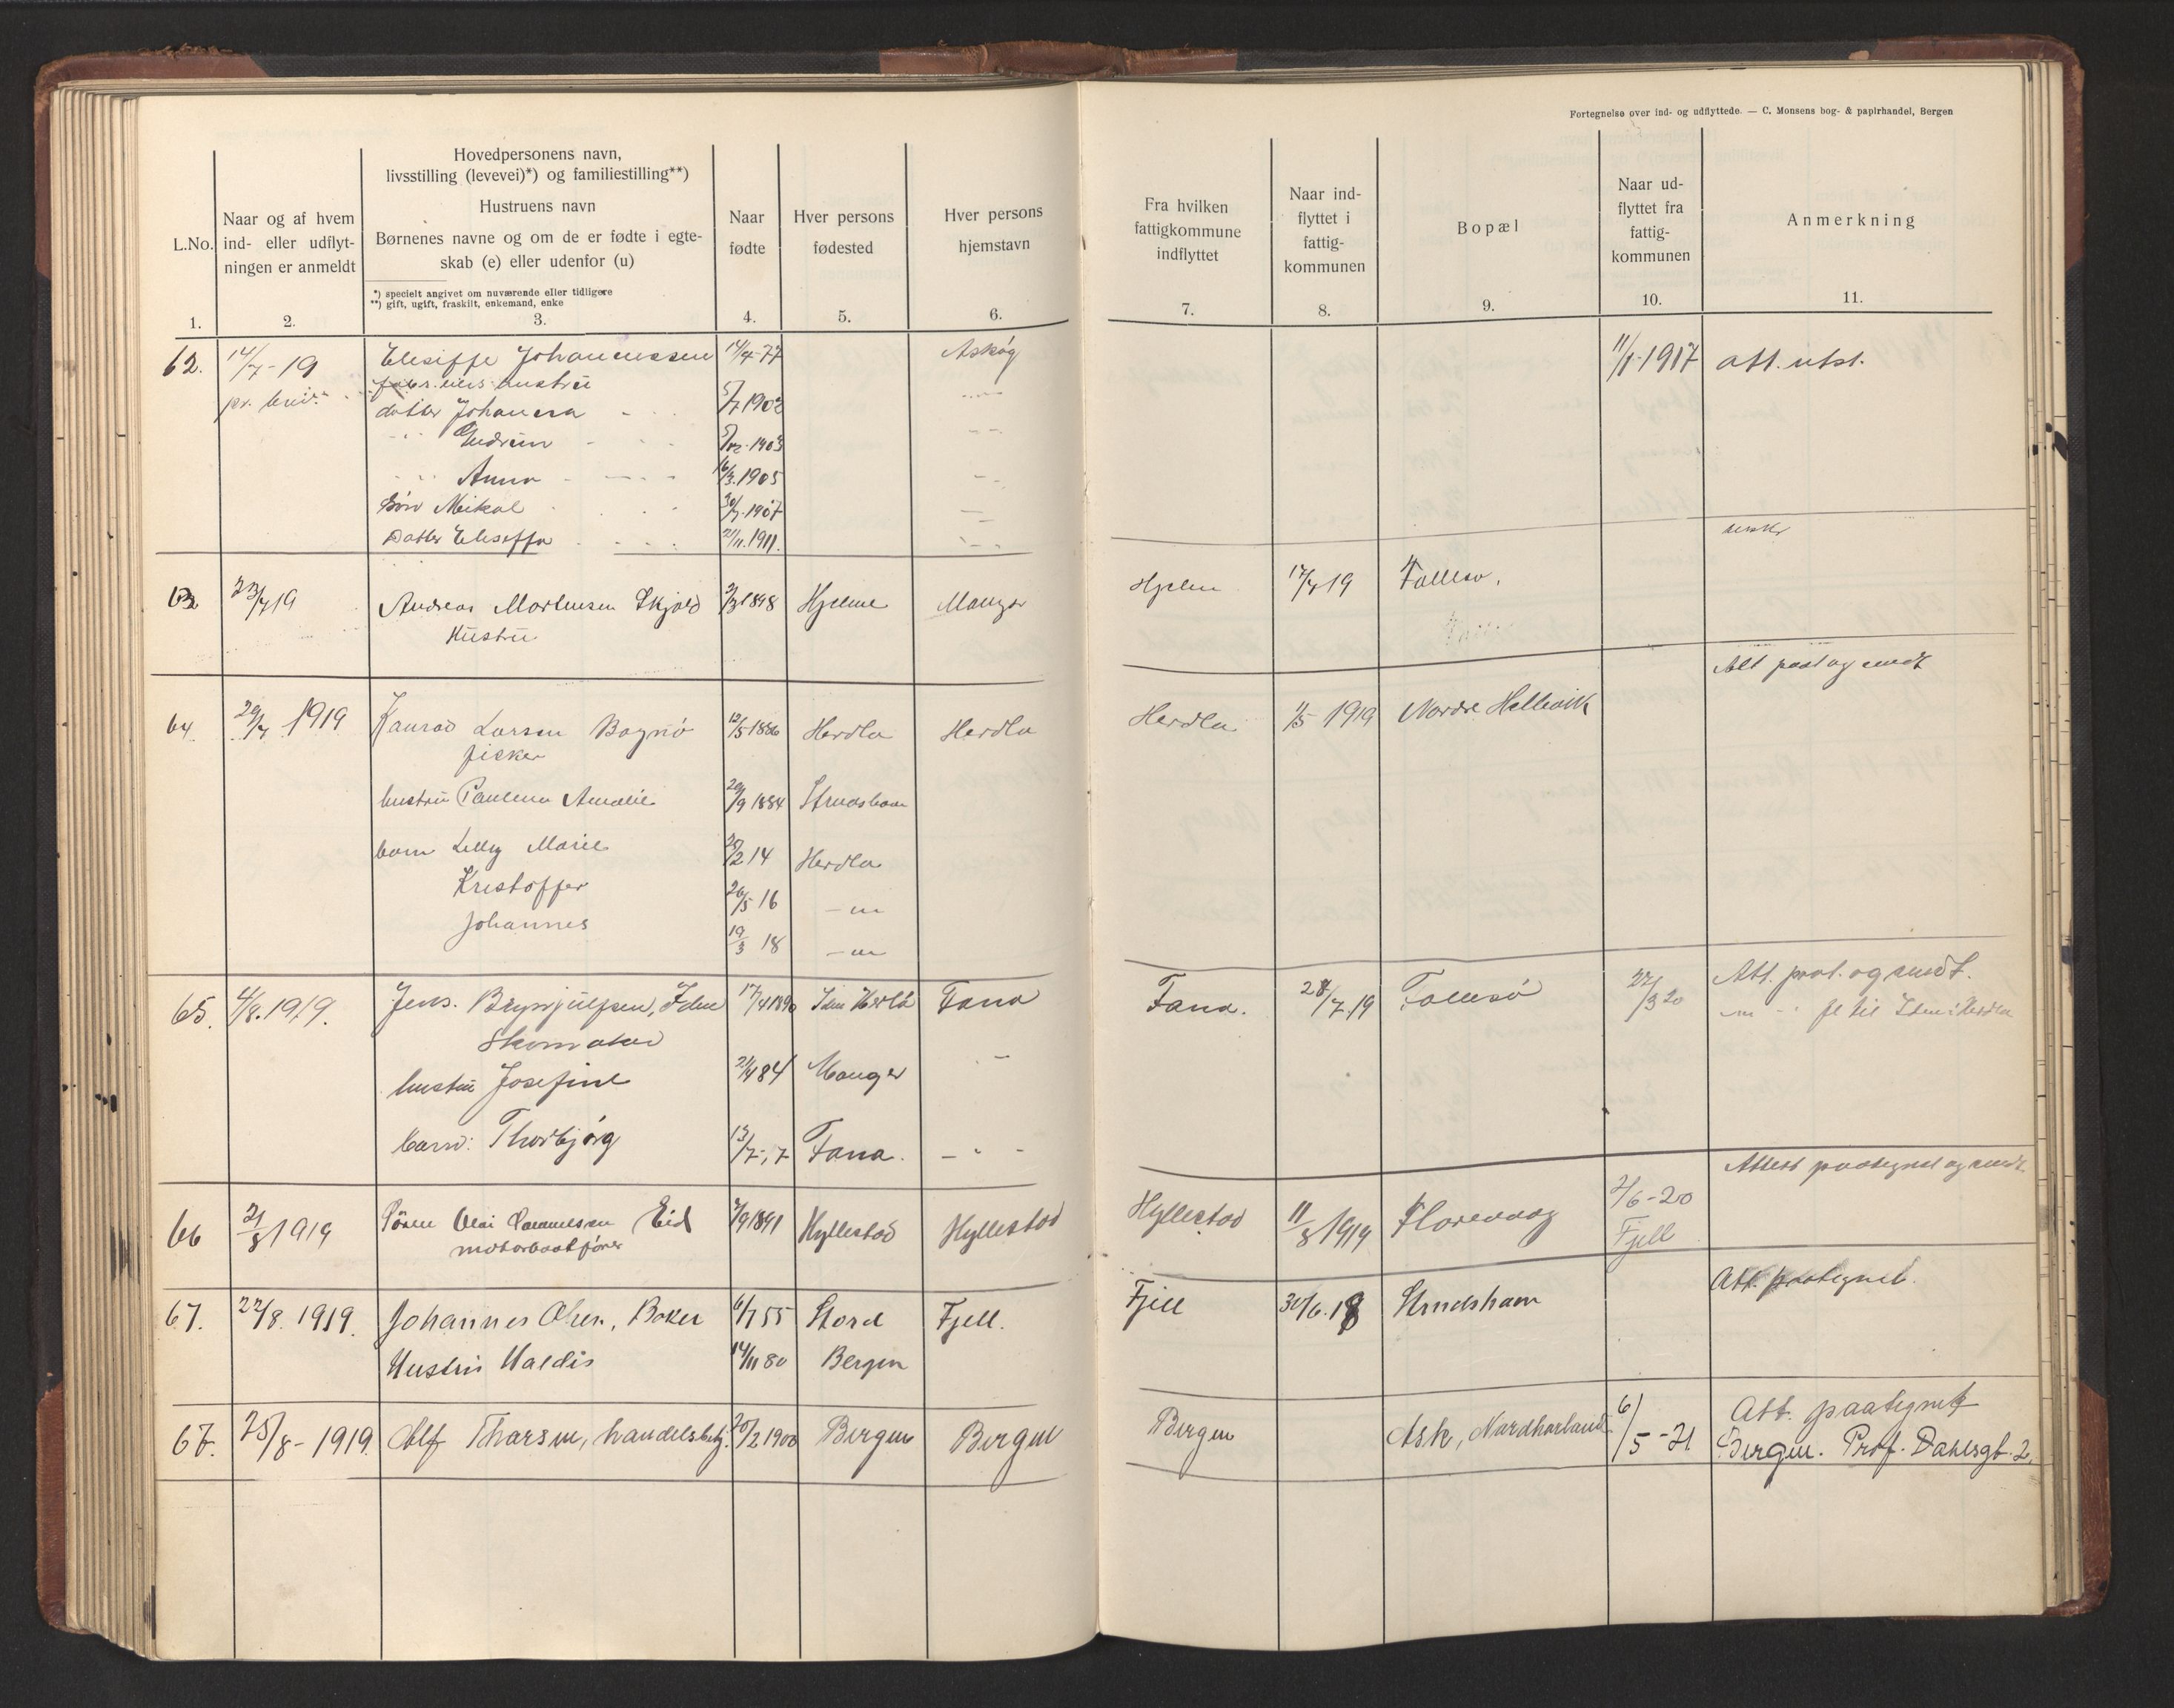 Fortegnelse over ind- og udflyttede. — C. Monsens bog- & papirhandel, Bergen
L.No.
1.
Naar og af hvem
ind- eller udflyt-
ningen er anmeldt
2.
Hovedpersonens navn,
livsstilling (levevei)*) og familiestilling**)
Hustruens navn
Børnenes navne og om de er fødte i egte-
skab (e) eller udenfor (u)
*) specielt angivet om nuværende eller tidligere
**) gift, ugift, fraskilt, enkemand, enke
3.
Naar
fødte
4.
Hver persons
fødested
5.
Hver persons
hjemstavn
6.
Fra hvilken
fattigkommune
indflyttet
7.
Naar ind-
flyttet i
fattig-
kommunen
8.
Bopæl
9.
Naar ud-
flyttet fra
fattig-
kommunen
10.
Anmerkning
11.
62. 14/7-19 Eliseffe Johannessen 14/4-77 Askøy 11/1-1917 att. utst.
hustru
datter Johanna 5/7 1902
Gudrun 5/12-1903
Anna 16/3.1905
Søn Mikal 30/7-1907
Datter Eliseffa 21/11.1911.
63 23/7 19 Andreas Mortensen Skjold 2/3 1898 Hjelme Manger Hjelm 17/7 19 Follesø.
Hustru
Att paateg sendt
64. 29/7 1919 Konrad Larsen Bognø 12/5 1886 Herdla Herdla Herdla 1/5 1919 Nordre Hellevik
fisker
hustru Paulina Amalie 29/9 1884 Strudshavn
barn Lilly Marie 25/2 14 Herdla
Kristoffer 26/5 16 — " —
Johannes 19/3 18 — " —
65. 4/8.1919. Jens. Brynjulfsen, Ådne 17/4 1890 Fana Fana. 28/7.19 Follesø 22/3 20 Att. paat. og sendt.
Skomaker
hustru Josefine 21/4 84 Manger
barn: Thorbjørg 13/7-17 Fana. - " -
66 21/8 1919 Søren Olai Samuelsen Eid 7/9 1891 Hyllestad Hyllestad Hyllestad 11/8 1919 Florevaag 2/6-20 Attest paategnet og sendt
motorbaatfører Fjell
67. 22/8.1919. Johannes Olsen, Baker 6/7 55 Stord Fjell. Fjell 30/6.18 Strudshavn Att. paategnet.
Hustru Valdis 14/11 80 Bergen
67. 25/8-1919. Alf Tharsen, handelsbetj. 20/2 1900 Bergen Bergen Bergen Ask, Nordhorland 6/5-21 Att. paategnet
Bergen. Prof. Dahlsgt. 2.